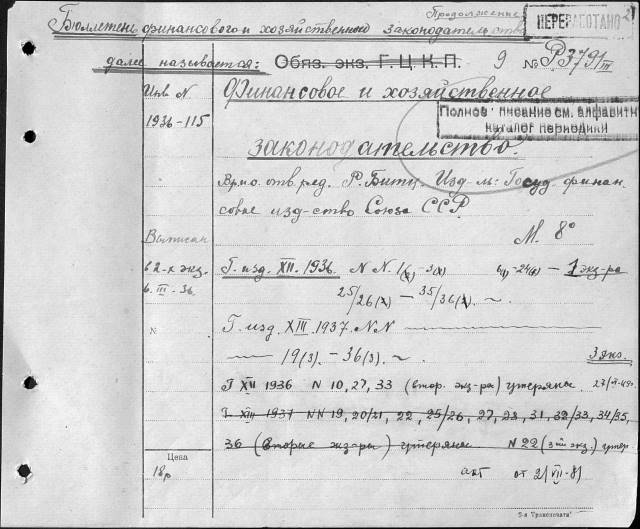 Продолжение
Бюллетень финансового и хозяйственного законодательства
ПЕРЕРАБОТАНО
далее называется: Обяз. экз. Г.Ц.К.П. 9 № Р3791/III
Инв N Финансовое и хозяйственное
1936-115
Полное писание см. алфавитн
каталог периодики
законодательство.
Врио. отв. ред. Р. Битк. Изд-ль: Госуд. финан
совое изд-ство Союза ССР.
М. 8°
Выписан
в 2-х экз. Г. изд. XII. 1936. N N. 1(2) -24(2) — 1 экз-ра
6. III - 36. 25/26(2) — 35/36(2). ~
№ Г. изд. XIII. 1937. N N
19(3). — 36(3). ~ 3 экз.
Г XII 1936 N 10, 27, 33 (втор. экз-ры) утеряны
Г XIII 1937 NN 19, 20/21, 22, 25/26, 27, 28, 31, 32/33, 34/35,
36 (вторые экз-ры) утеряны N 22 (3-ий экз) утер.
Цена
18р
акт от 2/VII-8)
5-я Транспечати